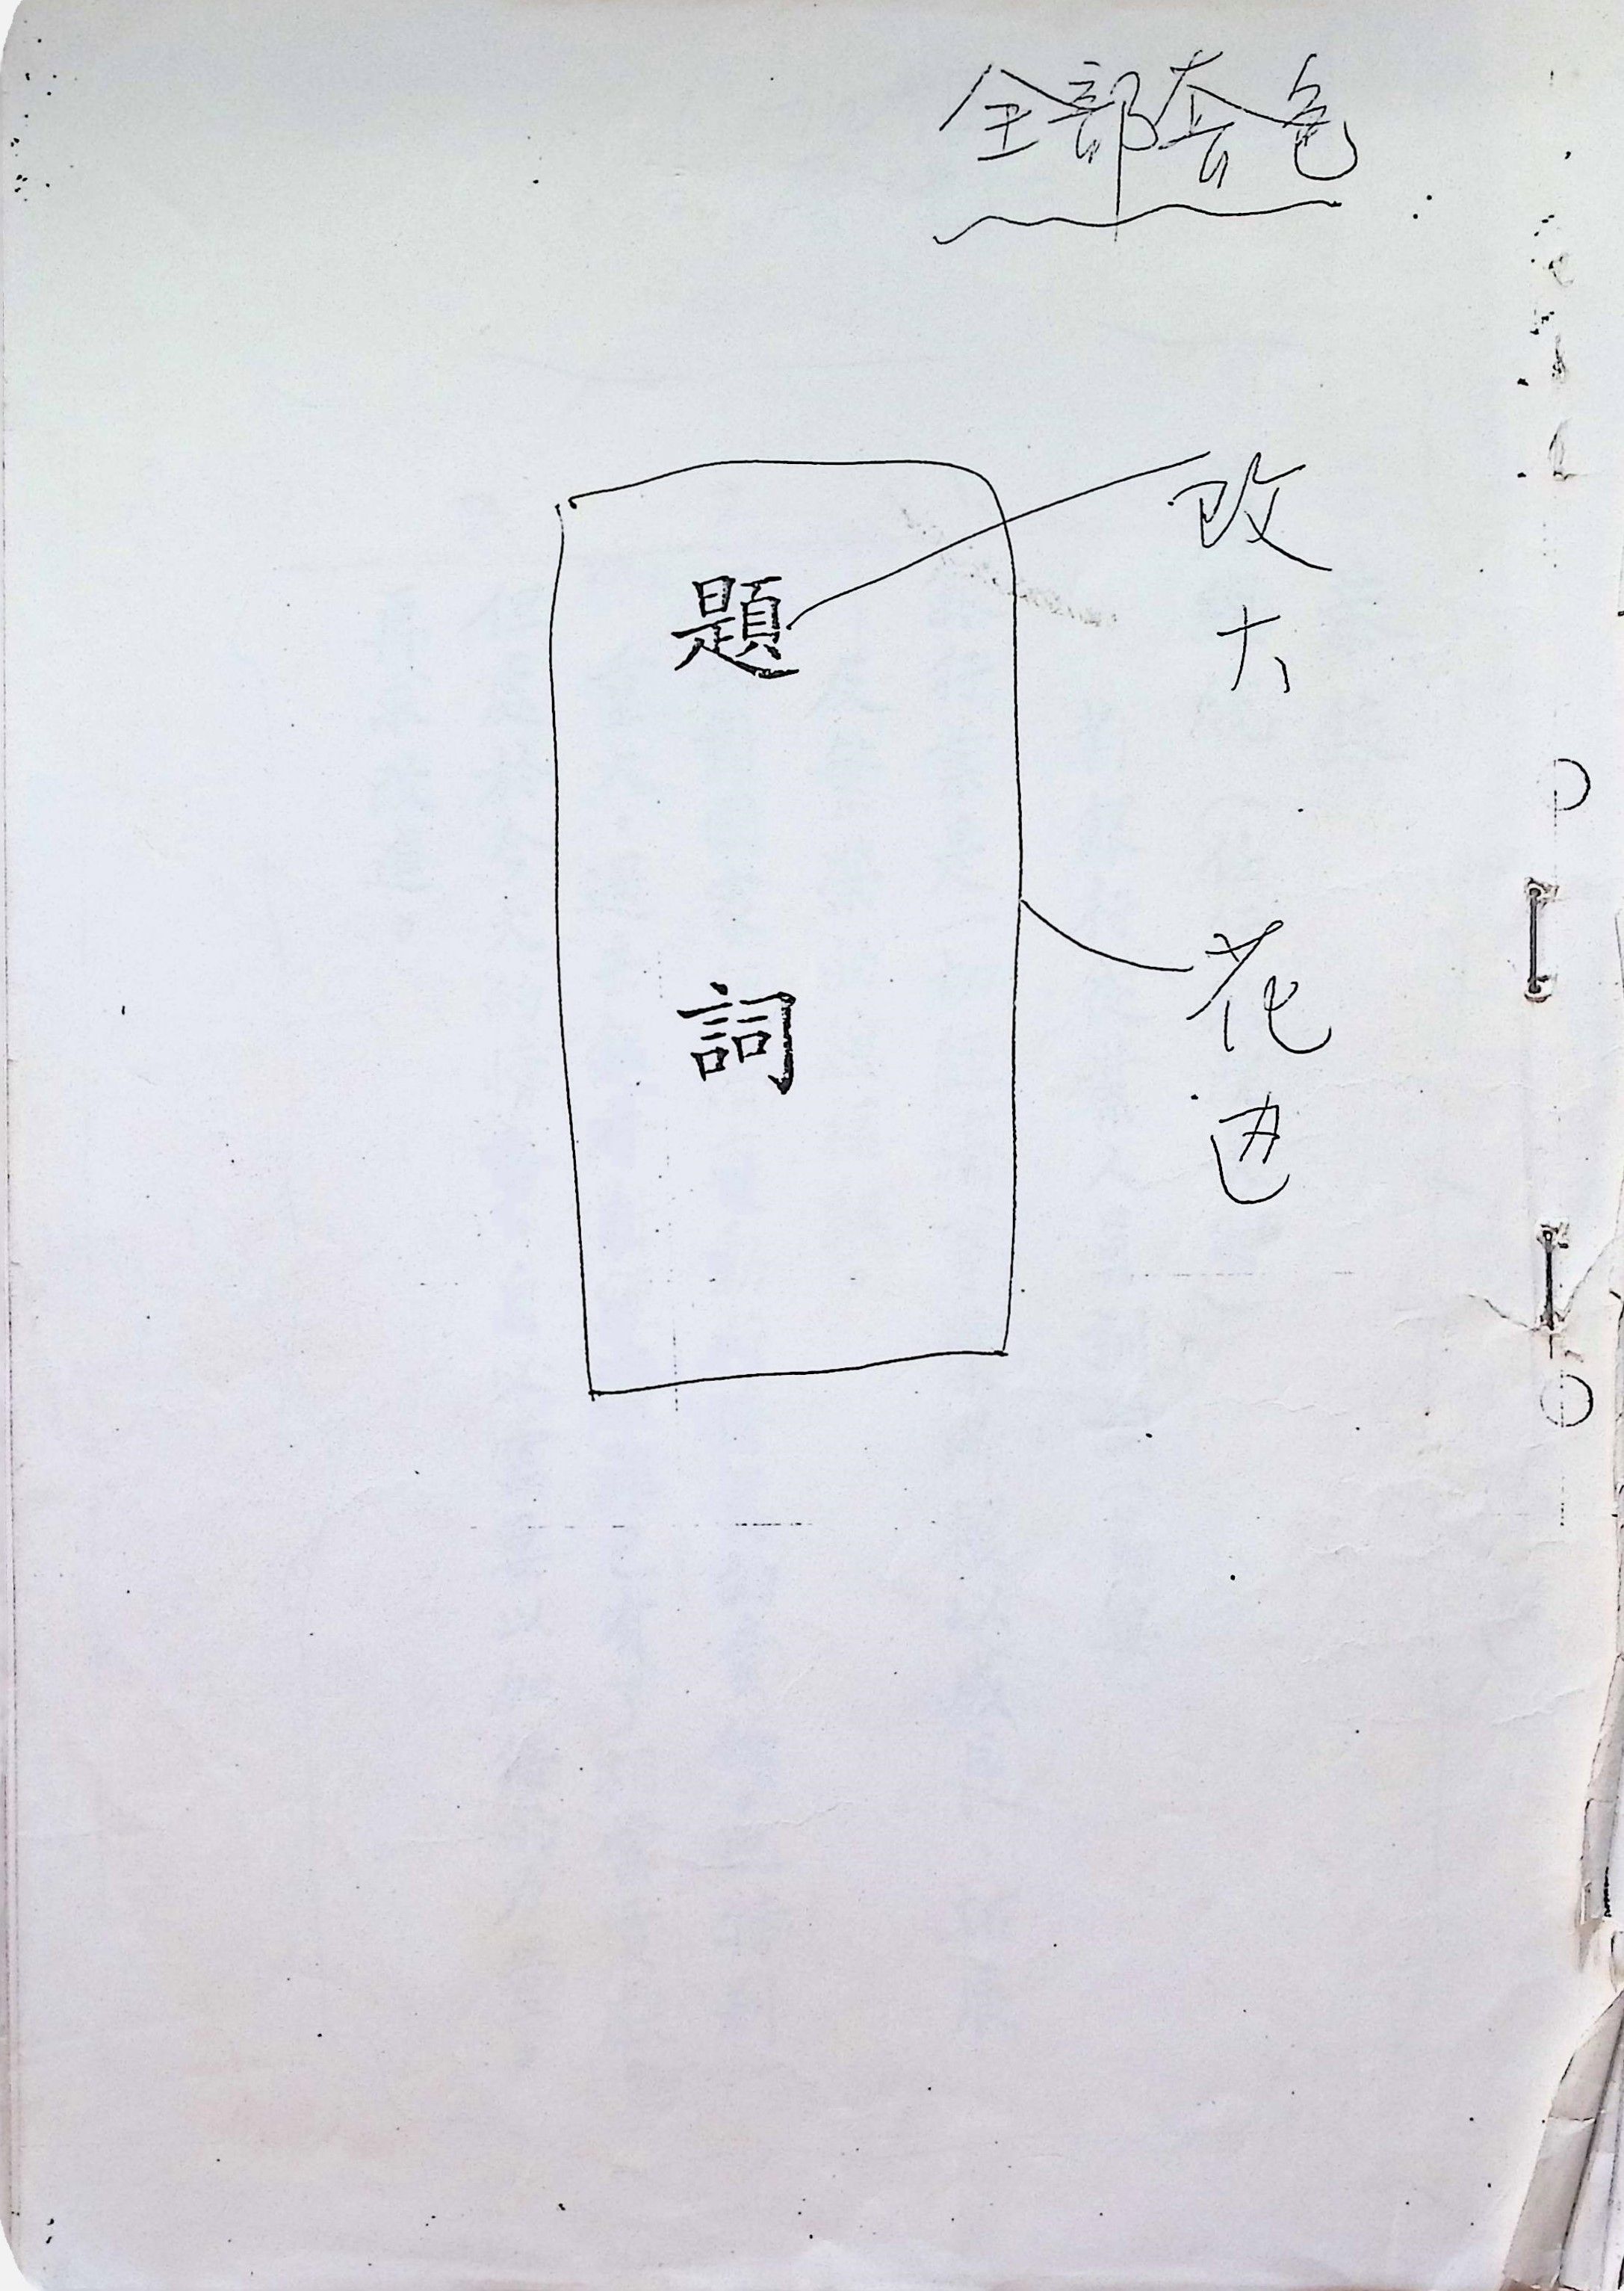 全部套色
改大
題詞
花边